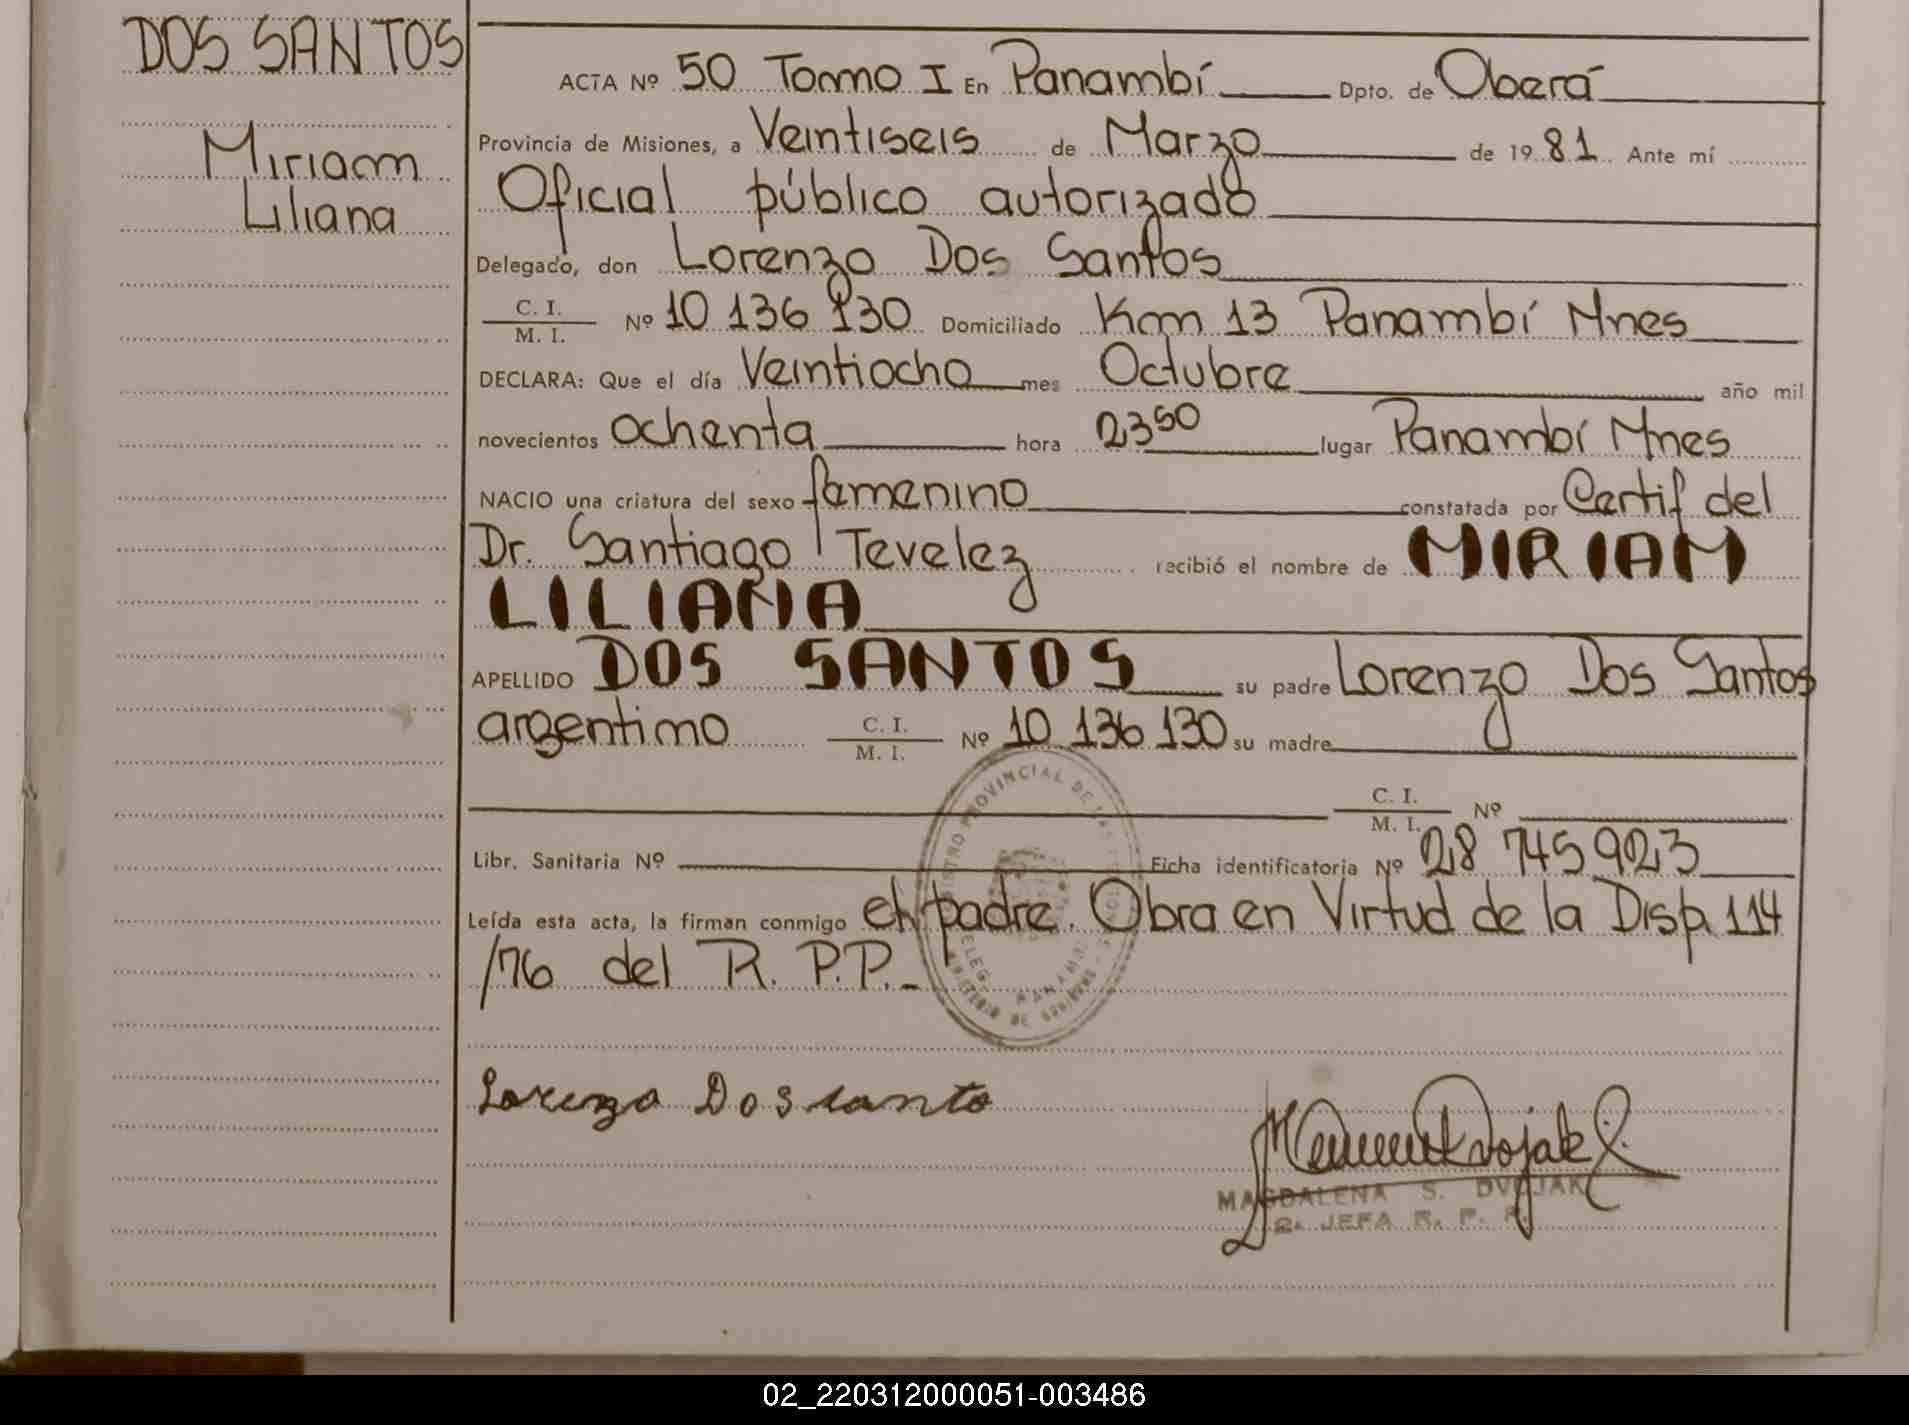 DOS SANTOS
Miriam
Liliana
ACTA Nº 50 Tomo I En Panambí Dpto. de Oberá
Provincia de Misiones, a Veintiseis de Marzo de 19 81 Ante mí
Oficial público autorizado
Delegado, don Lorenzo Dos Santos
C. I.
M. I. Nº 10 136 130 Domiciliado Km 13 Panambí Mnes
DECLARA: Que el día Veintiocho mes Octubre año mil
novecientos ochenta hora 23 50 lugar Panambí Mnes
NACIO una criatura del sexo femenino constatada por Certif del
Dr. Santiago Tevelez recibió el nombre de MIRIAM
LILIANA
APELLIDO DOS SANTOS su padre Lorenzo Dos Santos
argentino C. I. M. I. Nº 10 136 130 su madre
C. I. M. I. Nº
Libr. Sanitaria Nº Ficha identificatoria Nº 28 745 923
Leída esta acta, la firman conmigo el padre. Obra en Virtud de la Disp. 114
/76 del R. P.P.
Lorenzo Dos santo
MAGDALENA S. DVOJAK
2ª JEFA R. P. P.
02_220312000051-003486